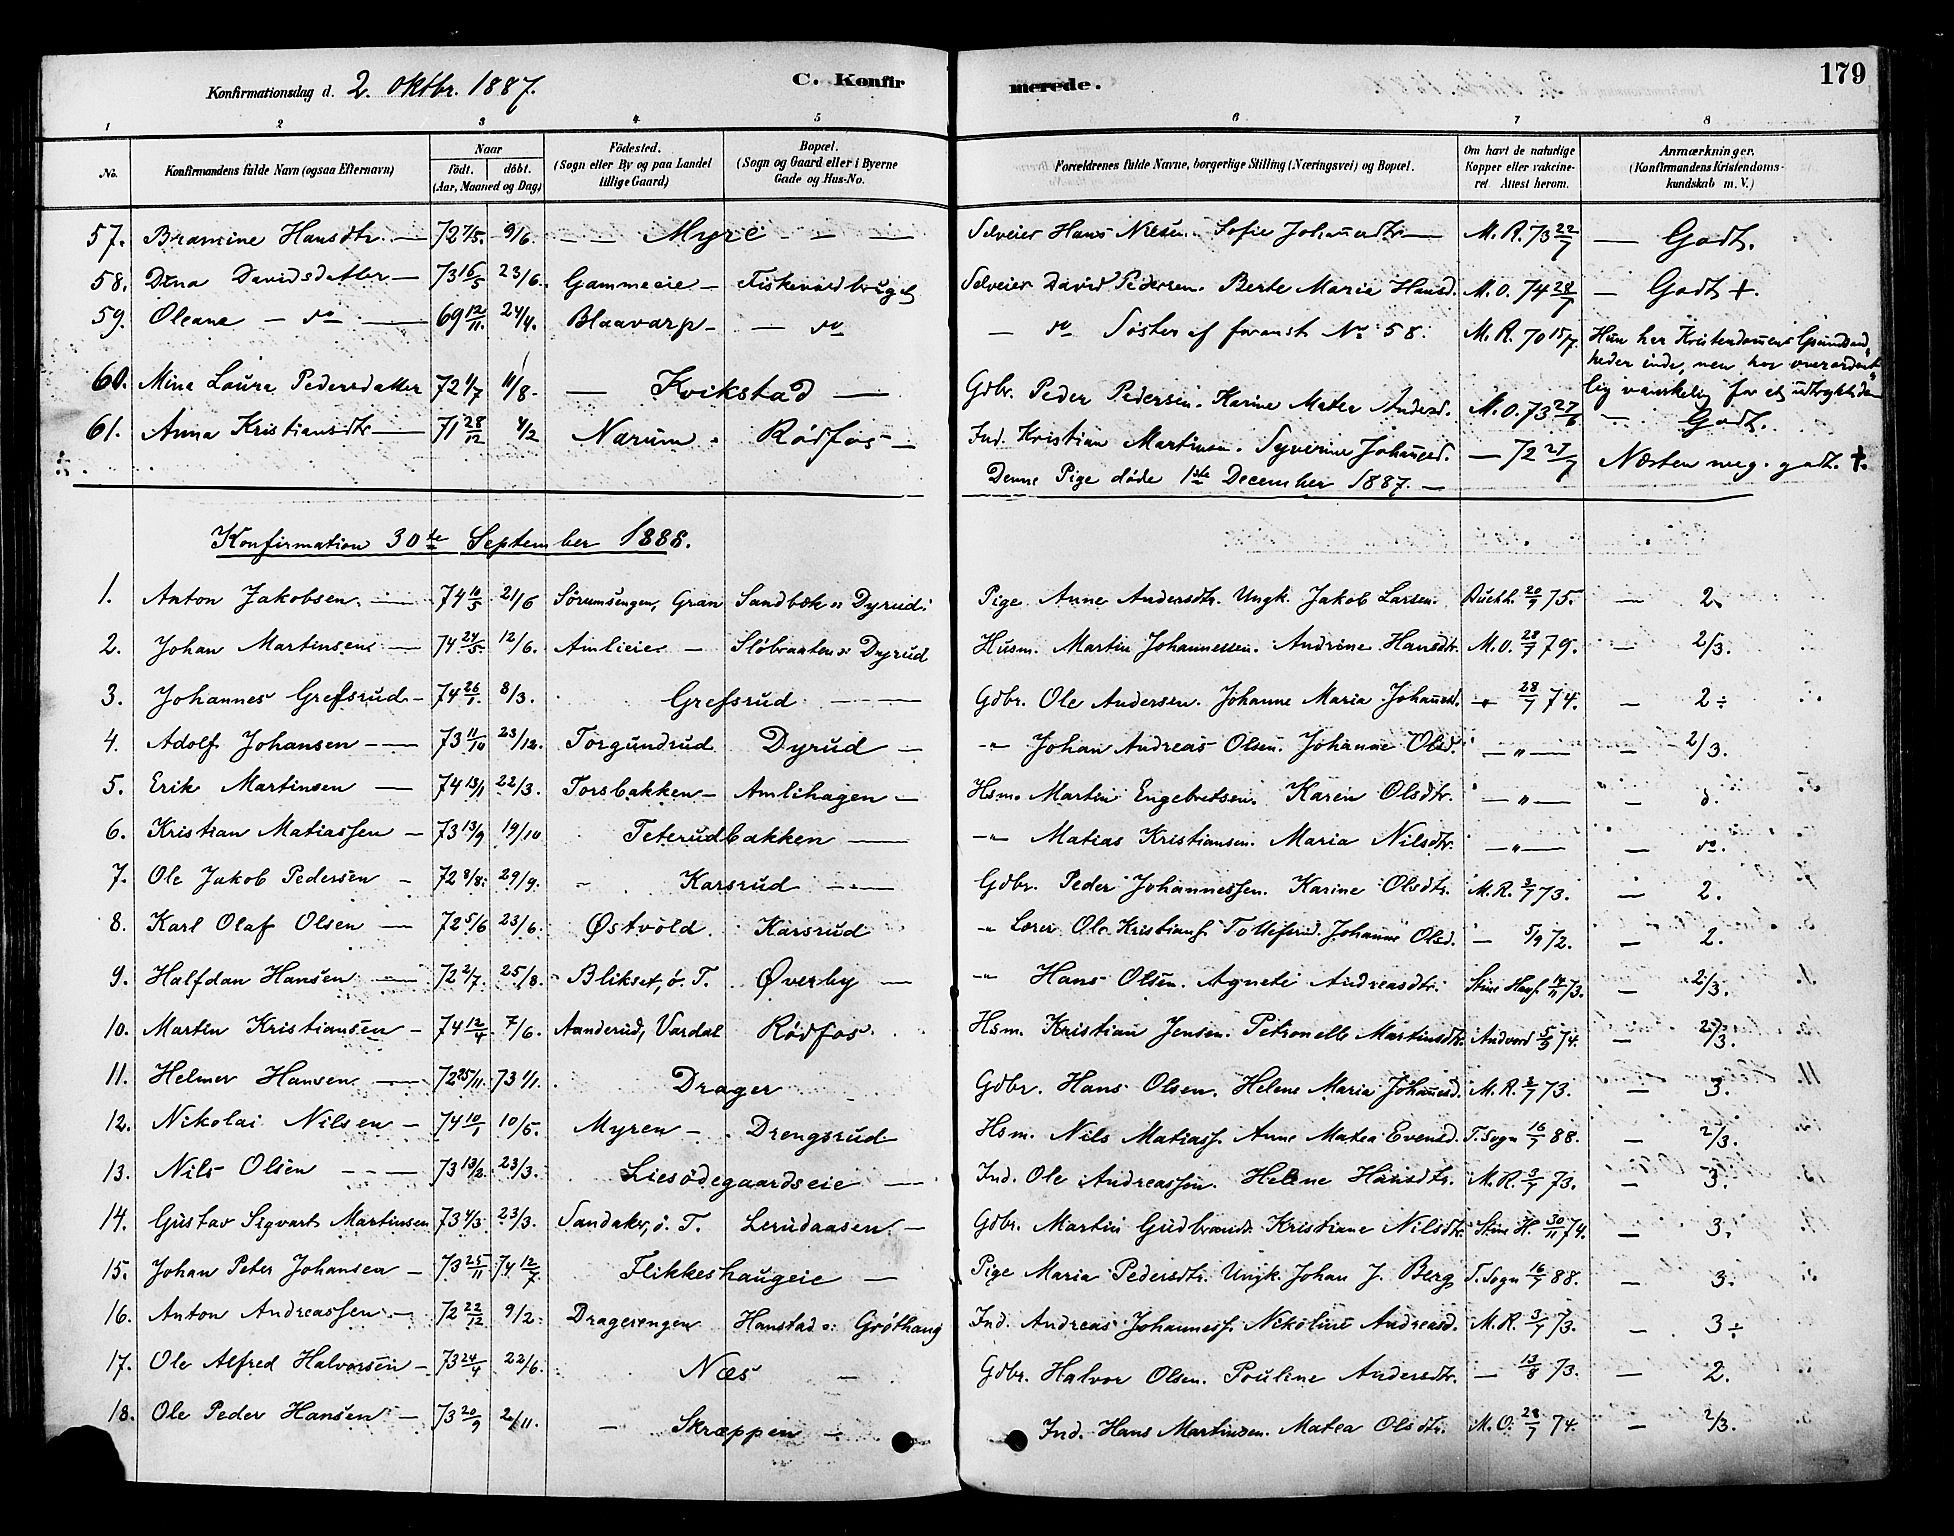 179
Konfirmationsdag d. 2. Oktbr. 1887. C. Konfirmerede.
1 2 3 4 5 6 7 8
No. Konfirmandens fulde Navn (ogsaa Efternavn) Naar födt. döbt. (Aar, Maaned og Dag) Födested. (Sogn eller By og paa Landet tillige Gaard) Bopæl. (Sogn og Gaard eller i Byerne Gade og Hus-No. Forældrenes fulde Navne, borgerlige Stilling (Næringsvei) og Bopæl. Om havt de naturlige Kopper eller vakcineret. Attest herom. Anmærkninger. (Konfirmandens Kristendomskundskab m. V.)
57. Bramine Hansdtr. — 72 7/5. 9/6. — — Myre — — — Selveier Hans Nilsen. Sofie Johannesdtr — M. R. 73 22/7 — Godt.
58. Dina Davidsdatter — 73 16/5 23/6. Gammeeie — Selveier David Pedersen. Berte Maria Hansd. M. O. 74 28/7 — Godt +.
59. Oleane — do — 69 12/11. 24/4. Blaavarp — — do — do Søster af foranst. No 58. M. R. 70 15/7. Hun har Kristendommens
inde, men har
vanskelig for at
60. Mina Laura Pedersdatter 72 1/7 11/8. — Kvikstad — Gdbr. Peder Pedersen. Karine Matea Andersd. M. O. 73 27/6 — Godt.
61. Anna Kristiansdtr — 71 28/12 4/2 Nærum. Rödfos — Ind. Kristian Martinsen. Syverine Johannesd. — 72 27/7 Næsten meg. godt. +.
Denne Pige døde 1ste December 1887. —
Konfirmation 30te September 1888.
1. Anton Jakobsen. — 74 10/5 21/6 Sörumsengen, Gran Sandbæk u. Dyrud. Pige Anne Andersdtr. Ungk. Jakob Larsen. Buchh. 20/9 75. — 2.
2. Johan Martinsen — 74 24/5 12/6. Amlieie — Slöbraaten u. Dyrud Husm. Martin Johannessen. Andrine Hansdtr. M. O. 28/7 79. — 2/3.
3. Johannes Grefsrud — 74 26/1. 8/3. Grefsrud — Gdbr. Ole Andersen. Johanne Maria Johannesd. — " 28/7 74. — 2 ÷
4. Adolf Johansen — 73 11/10 23/12. Torgundrud. Dyrud — — " Johan Andreas Olsen. Johanne Olsd. — " — — 2/3.
5. Erik Martinsen — 74 13/1 22/3. Torsbakken — Amlihagen — Hsm. Martin Engebretsen. Karen Olsdtr. — " — —
6. Kristian Matiassen — 73 13/9 19/10 Teterudbakken — — " Matias Kristiansen. Maria Nilsdtr. — " — — do.
7. Ole Jakob Pedersen — 72 8/8. 29/9. — Karsrud — Gdbr. Peder Johannessen. Karine Olsdtr. M. R. 3/7 73. — 2.
8. Karl Olaf Olsen — 72 5/6 23/6. Østvold. Karsrud — " Lærer Ole Kristians. Johanne Olsd. — 5/9 72. — 2.
9. Halfdan Hansen — 72 2/7. 25/8. Blikset, ö. T. Øverby — — " Hans Olsen. Agnete Andreasdtr. Stine Hans. 14/11 73. — 2/3.
10. Martin Kristiansen — 74 12/4 7/6. Aanderud, Vardal Rödfos. Hsm. Kristian Jensen. Petronelle Martinsdtr. Andvord 5/9 74. — 2/3.
11. Helmer Hansen — 72 25/11. 73 1/1. Drager Gdbr. Hans Olsen. Helene Maria Johannesd. M. R. 3/7 73. — 3.
12. Nikolai Nilsen — 74 10/1 10/5. Myren — Drengsrud Hsm. Nils Matiass. Anne Matea Evensd. T. Sogn 16/7 88. — 2/3.
13. Nils Olsen — 73 13/2. 23/3. Liesödegaardseie — Ind. Ole Andreassen. Helene Hansdtr. M. R. 3/7 73. — 3.
14. Gustav Sigvart Martinsen 73 4/3. 23/3. Sandaker, ö. T. Lerudaasen — Gdbr. Martin Gudbrands. Kristiane Nilsdtr. Stine H. 30/11 74. — 3.
15. Johan Peter Johansen — 73 25/11 74 12/7. Flikkeshaugeie — Pige Maria Pedersdtr. Ungk. Johan J. Berg T. Sogn 16/7 88. — 3.
16. Anton Andreassen — 72 22/12 9/2. Dragerengen Hanstad u. Gröthaug Ind. Andreas Johanness. Nikoline Andreasd. M. R. 3/7 73. — 3 ÷
17. Ole Alfred Halvorsen — 73 24/4 22/6. Næs — Gdbr. Halvor Olsen. Pouline Andersdtr. — 13/8 73. — 2.
18. Ole Peder Hansen — 73 20/9 2/11. — Skræppen — Ind. Hans Martinsen. Matea Olsdtr. M. O. 28/7 74. — 2/3.